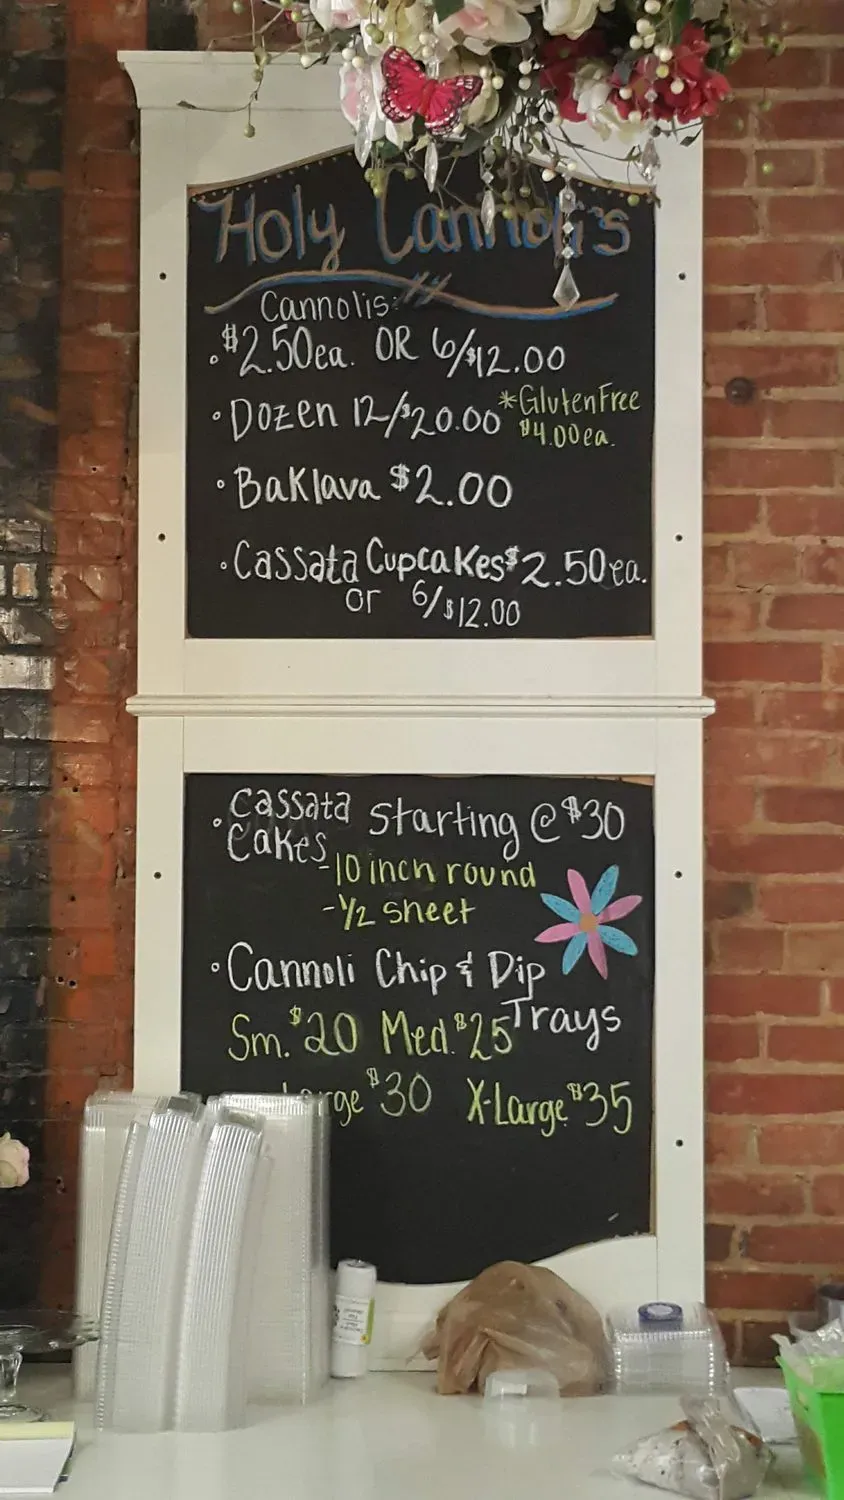 Holy Cannoli's
Cannolis:
• $2.50ea. OR 6/$12.00
• Dozen 12/$20.00
*Gluten Free
$4.00ea.
• Baklava $2.00
• Cassata Cupcakes $2.50ea.
or 6/$12.00
• Cassata Cakes Starting @ $30
-10 inch round
-1/2 sheet
• Cannoli Chip & Dip
Trays
Sm. $20 Med. $25
Large $30 X-Large $35